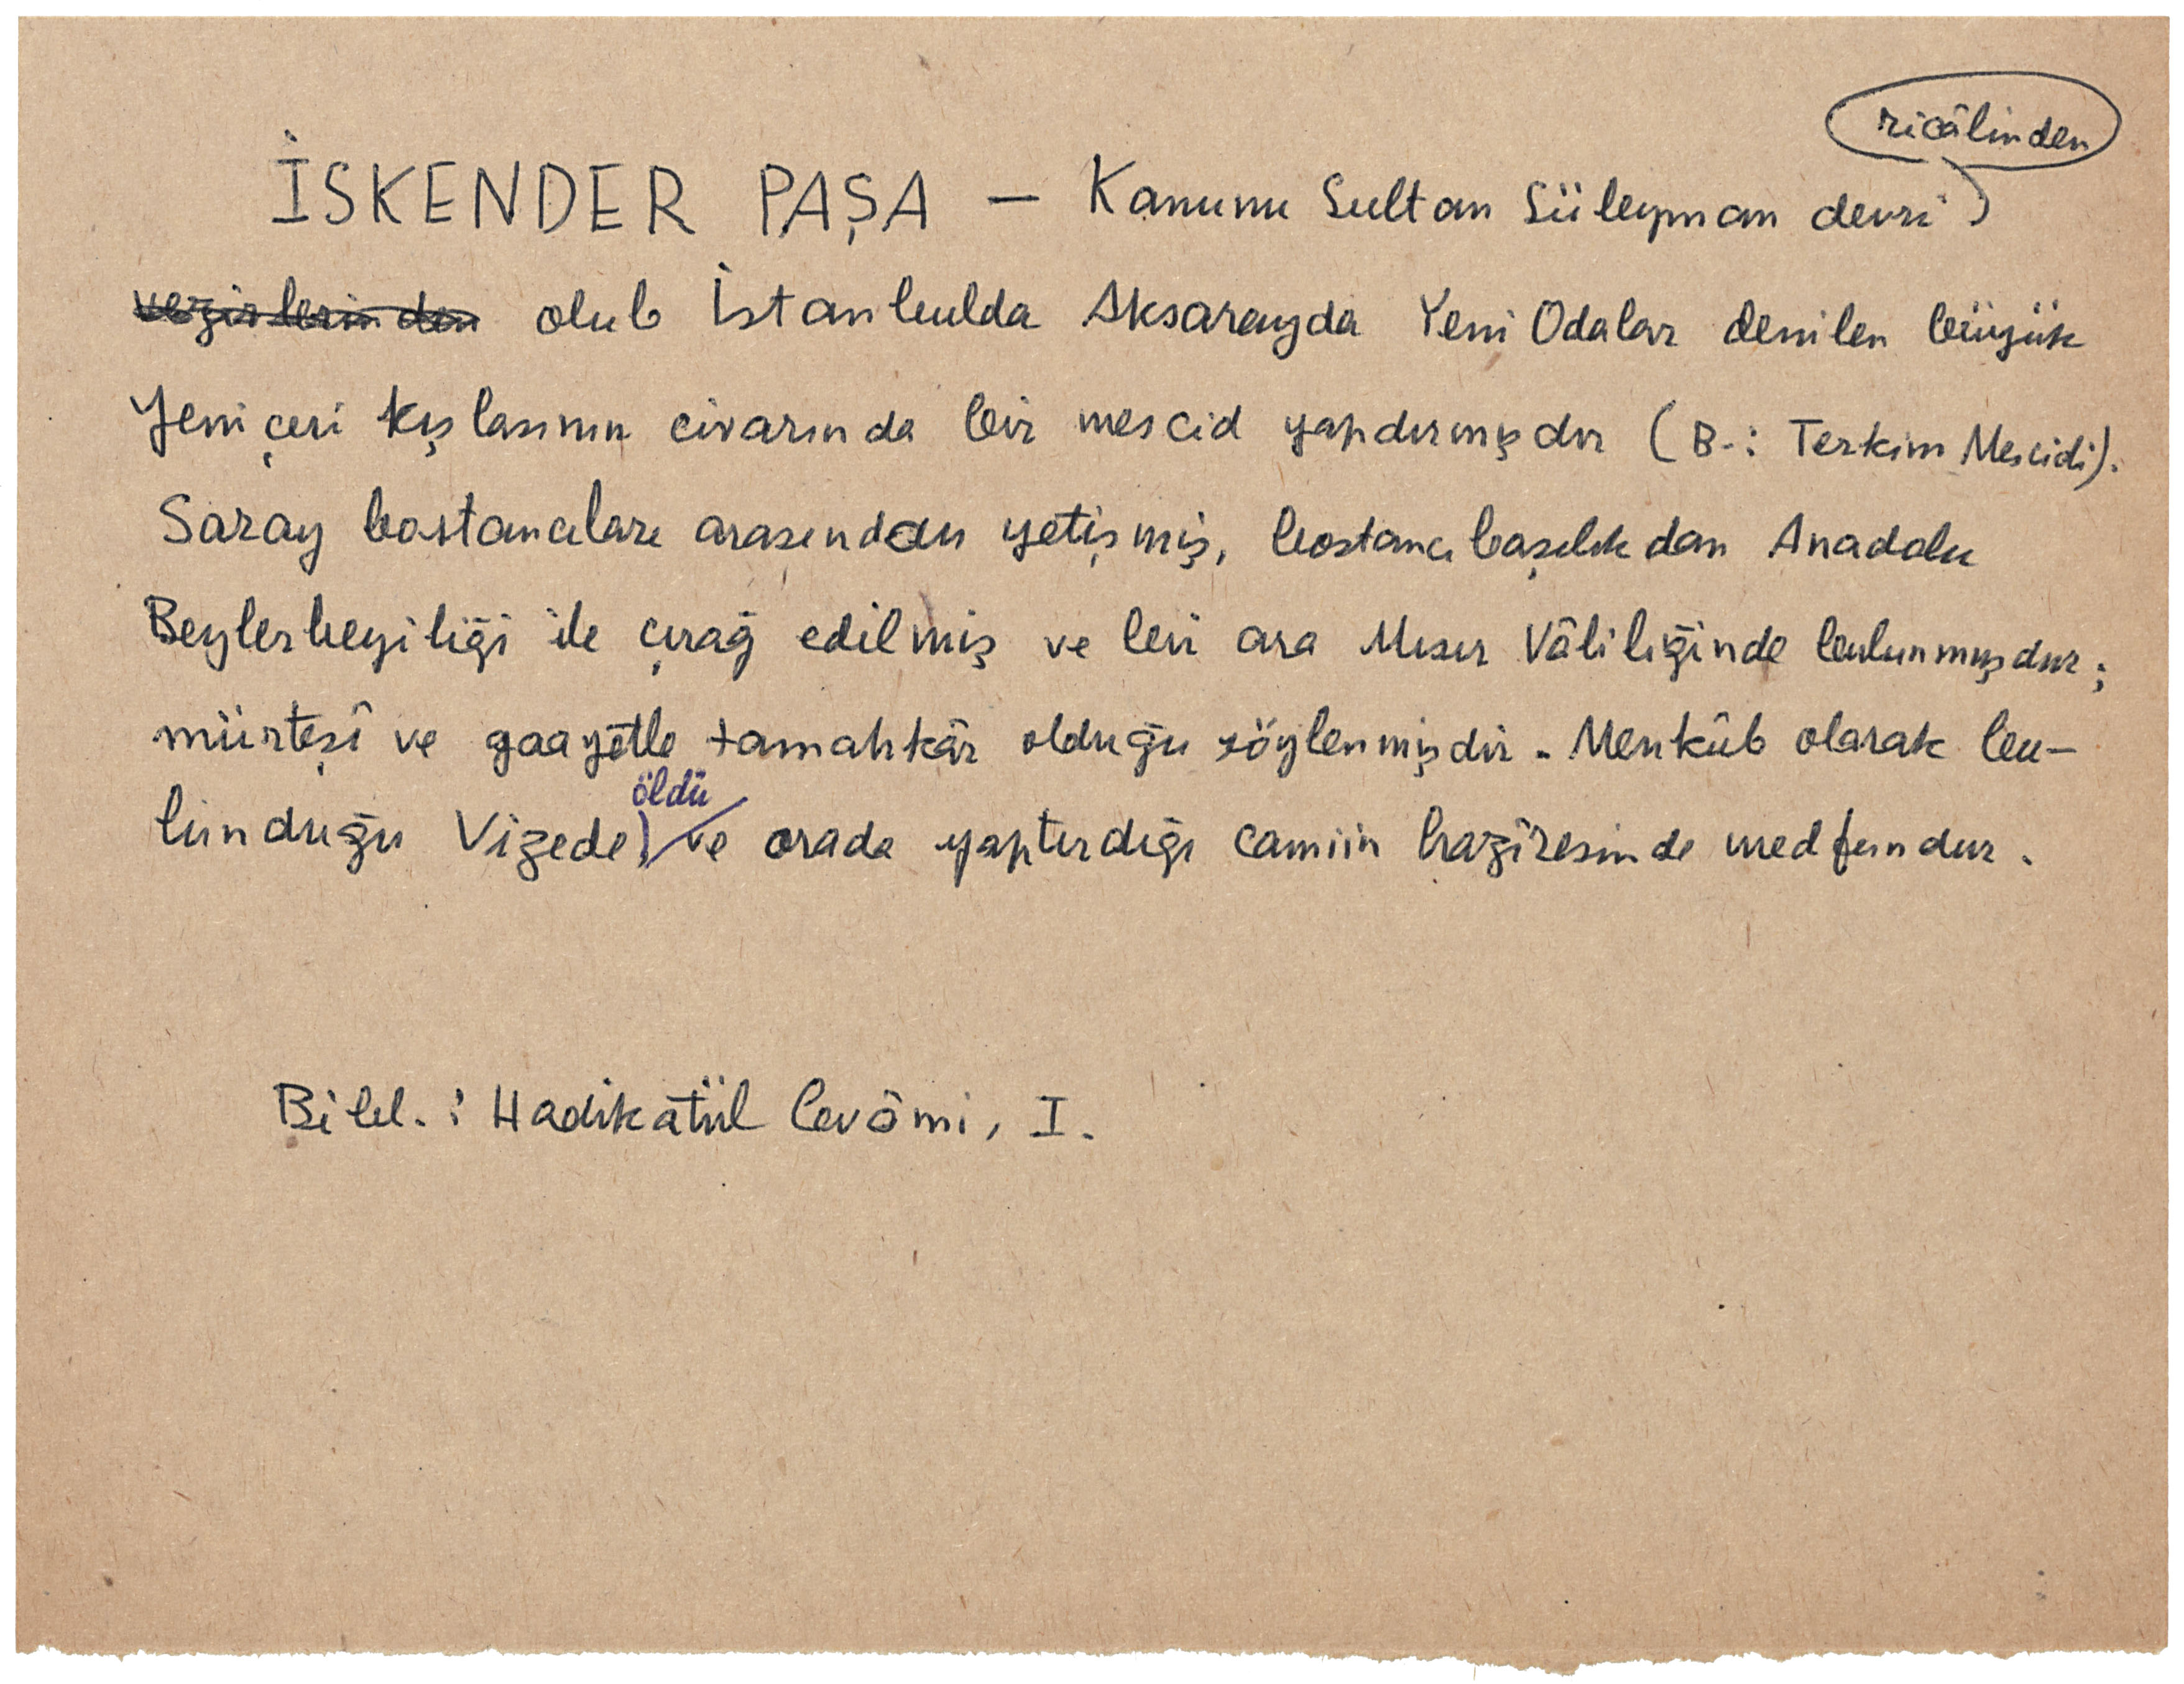 İSKENDER PAŞA — Kanunu Sultan Süleyman devri ricâlinden
vezirlerinden olub İstanbulda Aksarayda Yeni Odalar denilen büyük
Yeniçeri kışlasının civarında bir mescid yapdırmışdır (B.: Terkim Mescidi).
Saray bostancıları arasından yetişmiş, bostancıbaşılıkdan Anadolu
Beylerbeyiliği ile çırağ edilmiş ve bir ara Mısır Vâliliğinde bulunmuşdur;
mürteşî ve gaayetle tamahkâr olduğu söylenmişdir. Menkûb olarak bu-
lunduğu Vizede öldü ve orada yaptırdığı camiin hazîresinde medfundur.
Bibl.: Hadikatül Cevâmi, I.